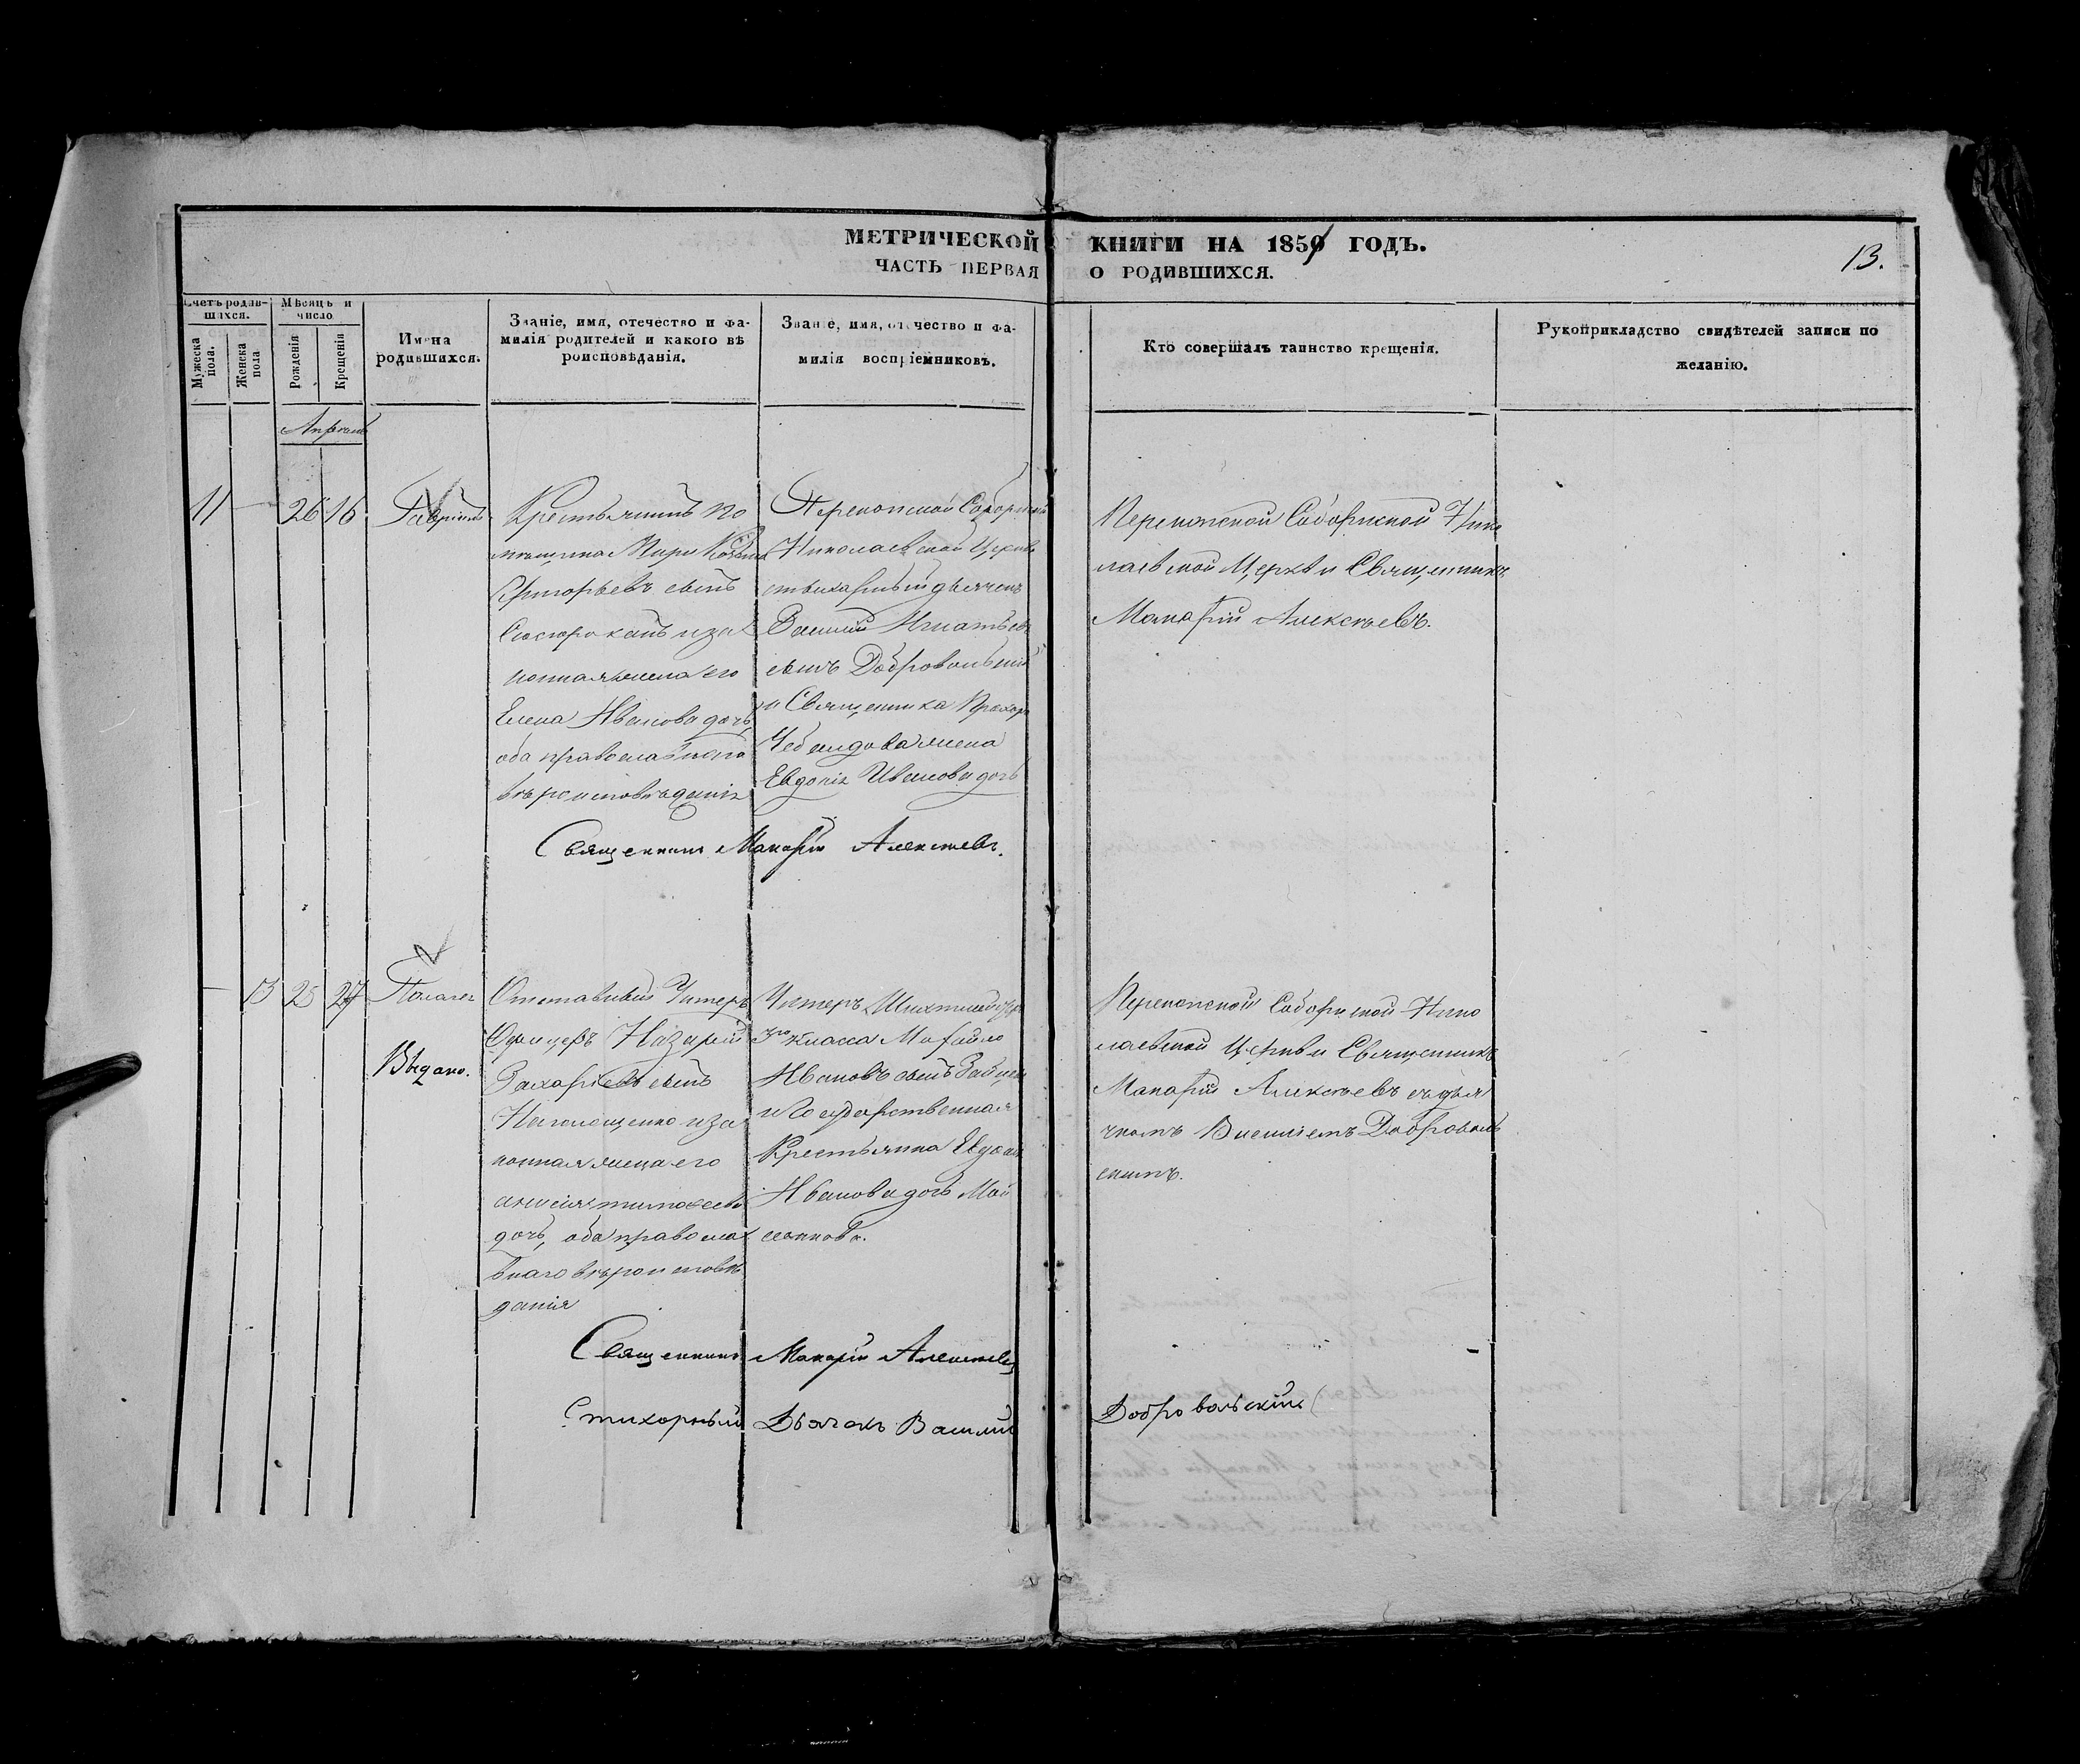 МЕТРИЧЕСКОЙ КНИГИ НА 1859 ГОДЪ.
13.
ЧАСТЬ ПЕРВАЯ О РОДИВШИХСЯ.
Счетъ родив-
шихся.
Мужеска пола.
Женска пола
Мѣсяцъ и
число
Рожденія
Крещенія
Имена
родившихся.
Званіе, имя, отечество и фа-
милія родителей и какого вѣ
роисповѣданія.
Званіе, имя, отечество и фа-
милія воспріемниковъ.
Кто совершалъ таинство крещенія.
Рукоприкладство свидѣтелей записи по
желанію.
11
26
16
Гавріилъ
Крестьянинъ по
Григорьевъ сынъ
иза
конная жена его
Елена Иванова дочь,
оба православнаго
вѣроисповѣданія
Перекопской Соборной
Николаевской Церкви
стихарный дьячекъ
Василий Игнатьевъ
сынъ Добровольский
и Священника
жена
Евдокія Иванова дочь
Перекопской Соборной Нико
лаевской Церкви Священникъ
Макарій Алексѣевъ.
Священникъ Макарій Алексѣевъ.
13
25
27
Пелагея
Выдано.
Отставный Унтеръ
Офицеръ Назарий
Захарьевъ сынъ
иза
конная жена его
дочь, оба правосла
внаго вѣроисповѣ
данія
Унтеръ
3го класса
Ивановъ сынъ
и Государственная
Крестьянка
Иванова дочь
Перекопской Соборной Нико
лаевской Церкви Священникъ
Макарій Алексѣевъ съ дья
чкомъ Василіемъ Доброволь
скимъ.
Священникъ Макарій Алексѣевъ
Стихорный Дьячекъ Василий Добровольскій